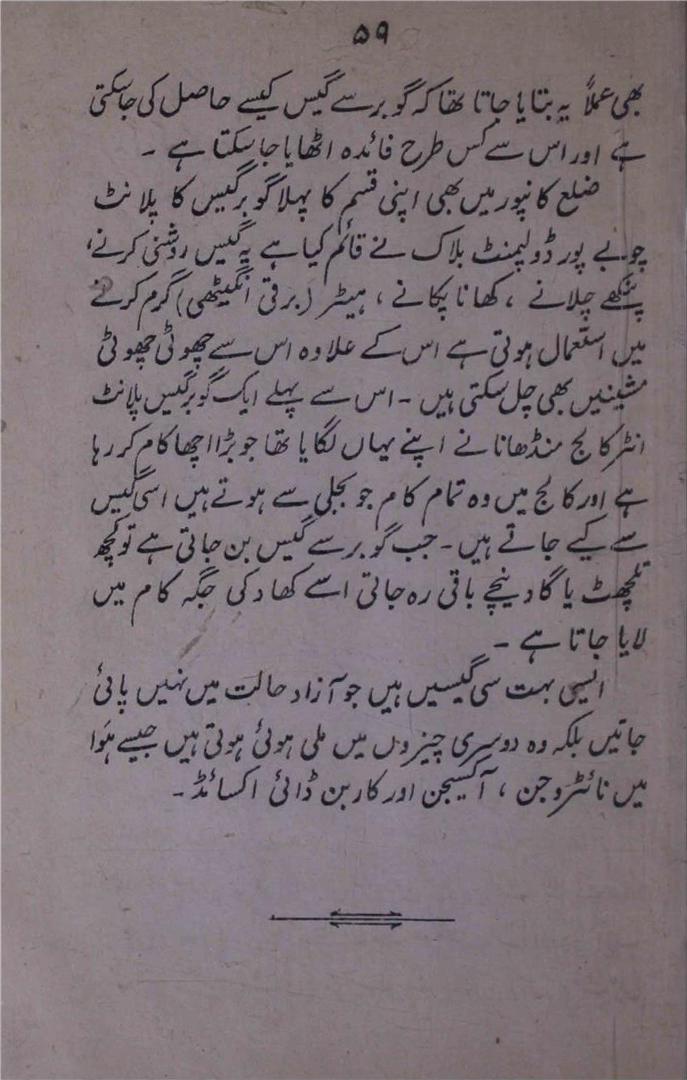 ۵۹
بھی عملاً یہ بتایا جاتا تھا کہ گوبر سے گیس کیسے حاصل کی جا سکتی
ہے اور اس سے کس طرح فائدہ اٹھایا جا سکتا ہے ۔
ضلع کانپور میں بھی اپنی قسم کا پہلا گوبر گیس کا پلانٹ
چوبے پور ڈولپمنٹ بلاک نے قائم کیا ہے یہ گیس روشنی کرنے،
پنکھے چلانے ، کھانا پکانے ، ہیٹر (برقی انگیٹھی) گرم کرنے
میں استعمال ہوتی ہے اس کے علاوہ اس سے چھوٹی چھوٹی
مشینیں بھی چل سکتی ہیں ۔ اس سے پہلے ایک گوبر گیس پلانٹ
انٹر کالج منڈھانا نے اپنے یہاں لگایا تھا جو بڑا اچھا کام کر رہا
ہے اور کالج میں وہ تمام کام جو بجلی سے ہوتے ہیں اسی گیس
سے کیے جاتے ہیں ۔ جب گوبر سے گیس بن جاتی ہے تو کچھ
تلچھٹ یا گاد نیچے باقی رہ جاتی اسے کھاد کی جگہ کام میں
لایا جاتا ہے ۔
ایسی بہت سی گیسیں ہیں جو آزاد حالت میں نہیں پائی
جاتیں بلکہ وہ دوسری چیزوں میں ملی ہوئی ہوتی ہیں جیسے ہَوا
میں نائٹروجن ، آکسیجن اور کاربن ڈائی اکسائڈ ۔